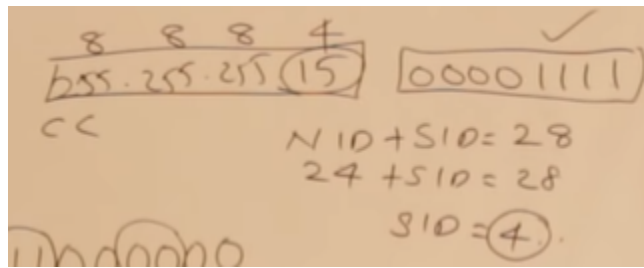 8 8 8 4
255.255.255.15 00001111
CC
NID+SID=28
24+SID=28
SID=4.
11000000